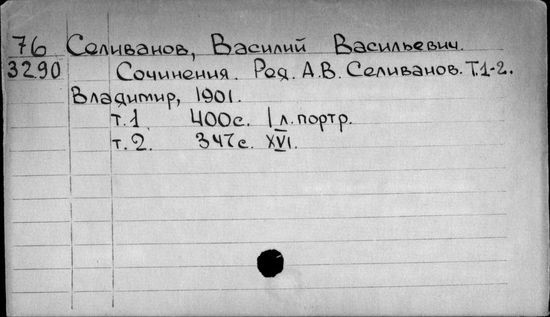 76 Селиванов, Василий Васильевич.
3290 Сочинения. Ред. А.В. Селиванов. Т.1-2.
Владимир, 1901.
т.1 400с. 1 л. портр.
т.2. 347с. XVI.